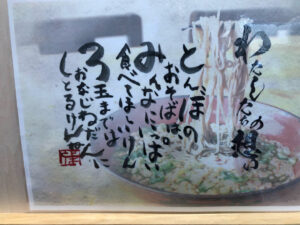 わたしたちの想い
とんぼの
おそばは。
みんなにいっぱい
食べてほしいけん
3玉までは
おなじねだんに
しとるけん